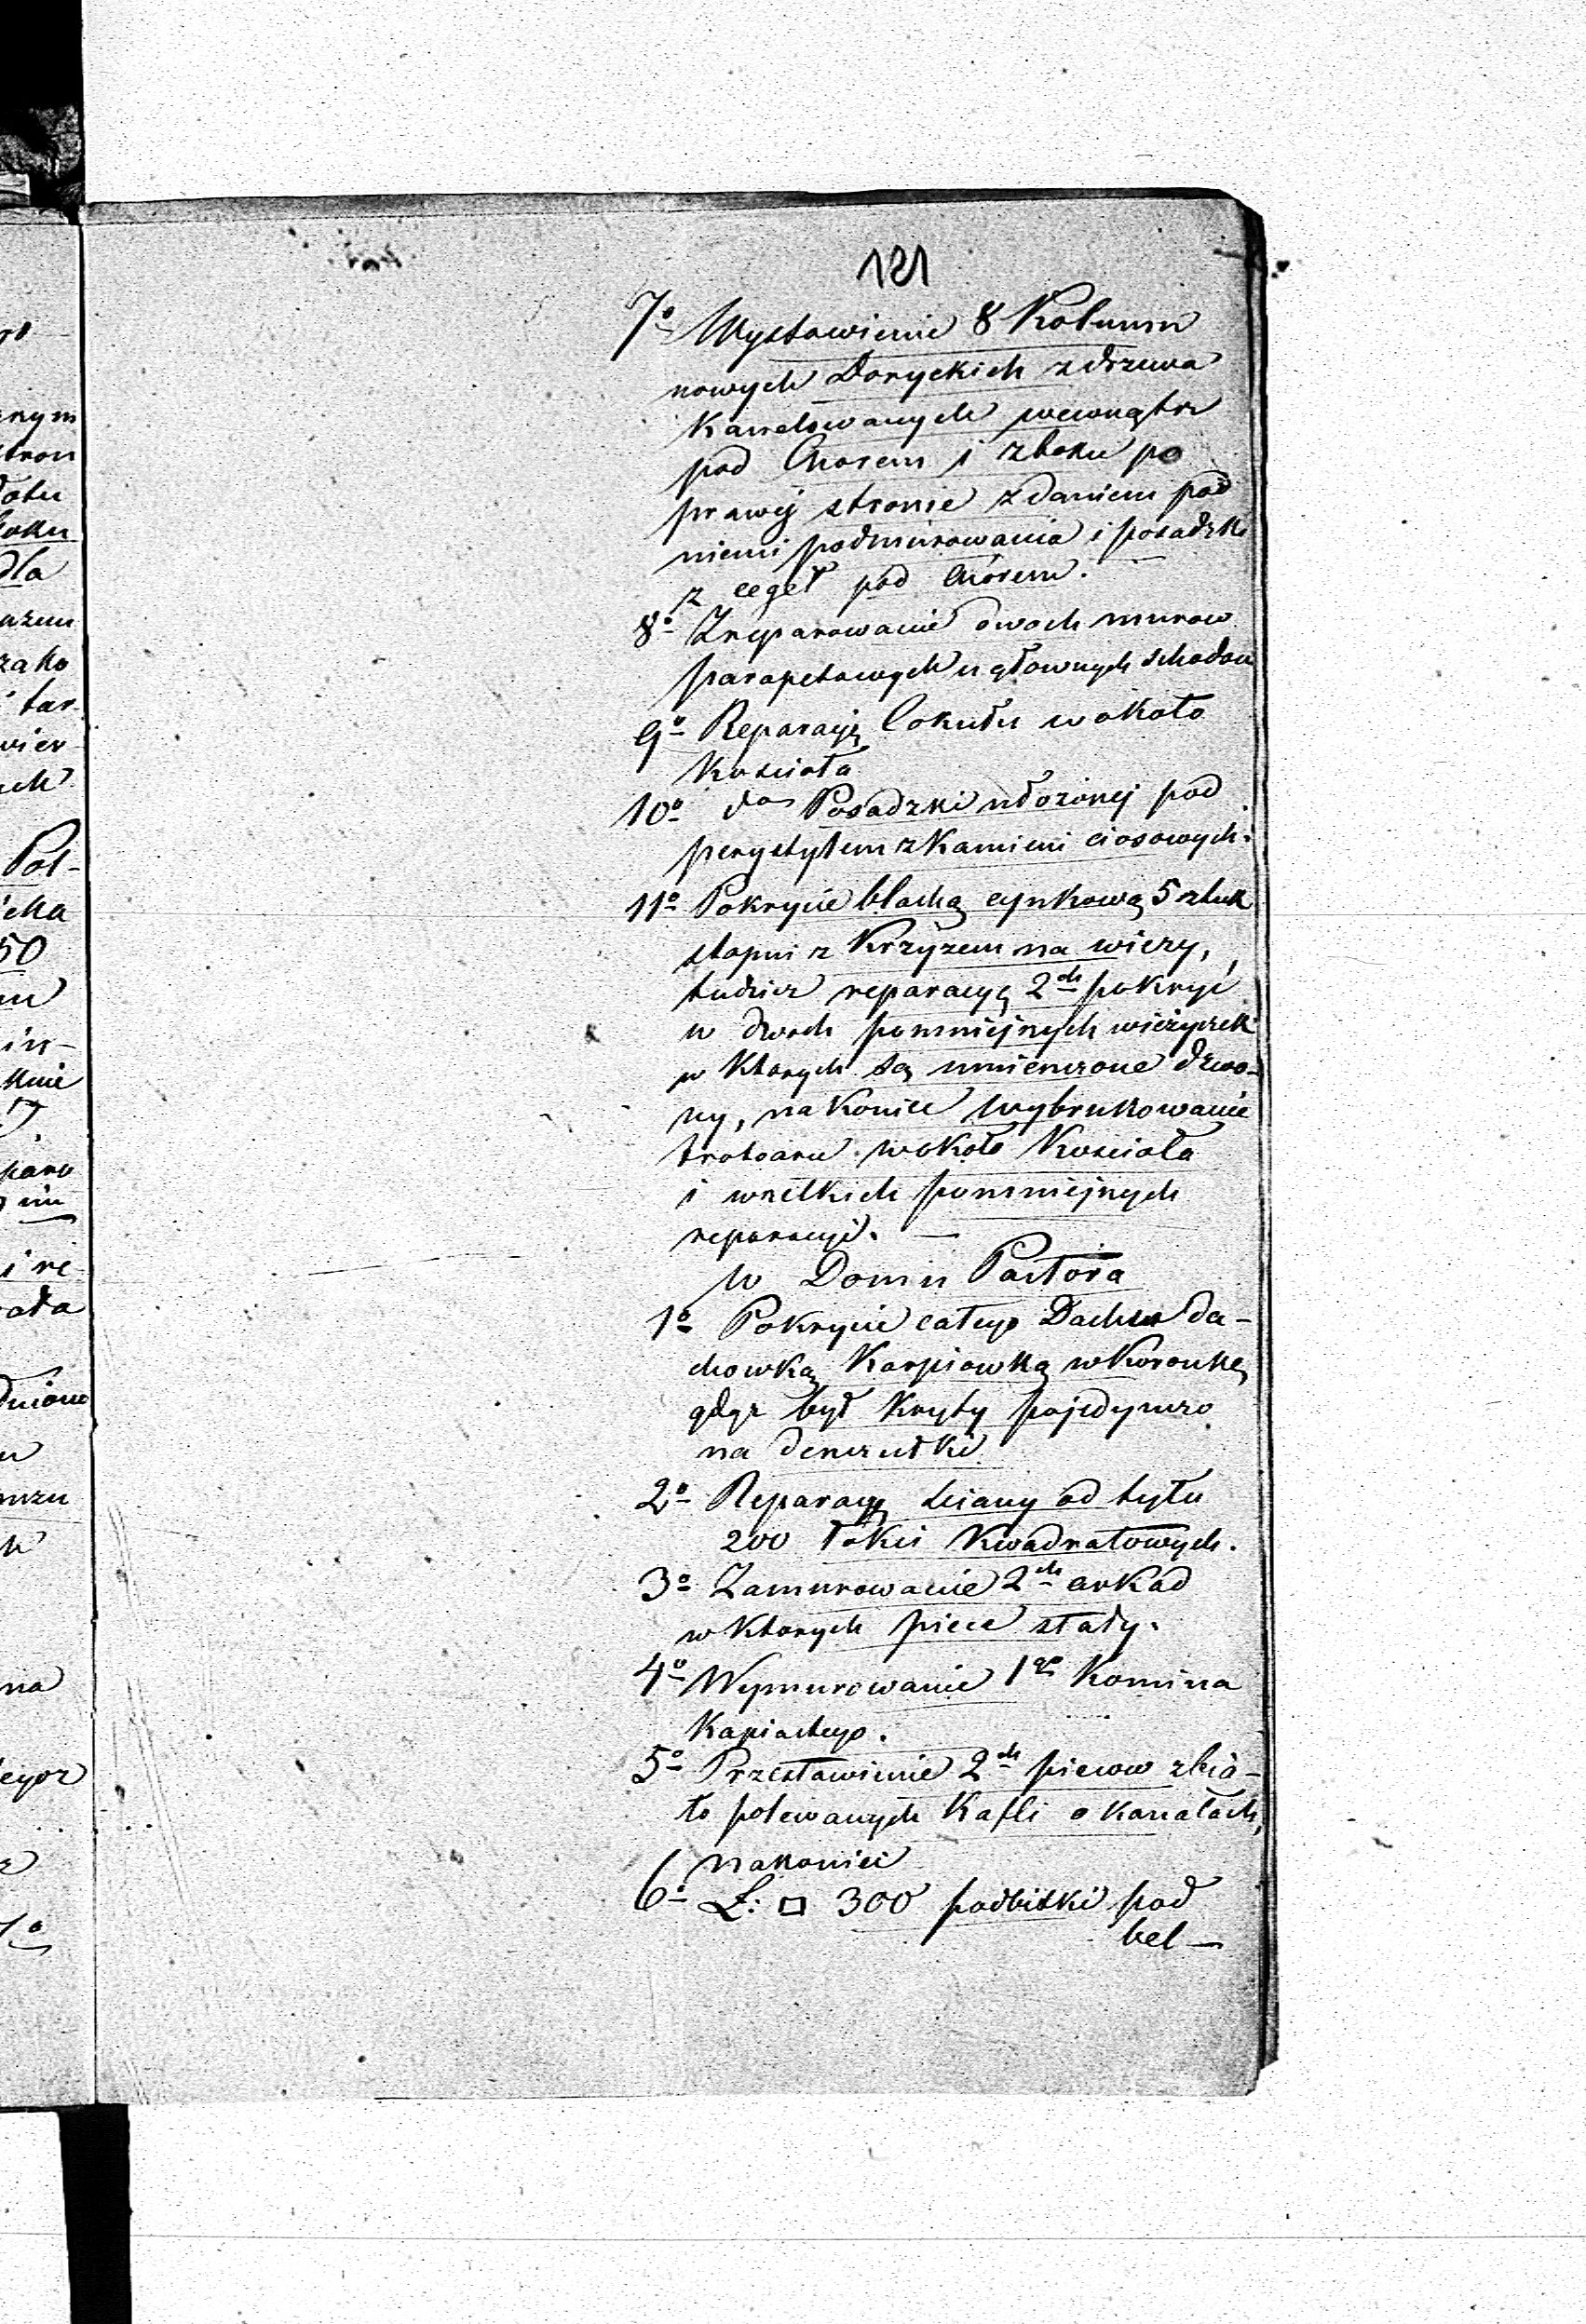 121
7o Wystawienie 8 Kolumn
nowych Doryckich z drzewa
Kanelowanych wewnątrz
pod Chorem i z boku po
prawej stronie z daniem pod
niemi podmurowania i posadzki
z cegeł pod Chórem.
8o Zreparowanie dwoch murow
parapetowych u głownych schodow
9o Reparacyę Cokułu w około
Koscioła
10o do Posadzki ułożonej pod
perystylem z Kamieni ciosowych.
11o Pokrycie blachą cynkową 5 sztuk
stopni z Krzyżem na wieży,
tudzież reparacyę 2ch pokryć
w dwoch pomniejszych wieżyczek
w Ktorych są umieszczone dzwo-
ny, na Koniec wybrukowanie
trotoaru wokoło Koscioła
i wszelkich pomniejszych
reparacyi. —
W Domu Pastora
1o Pokrycie całego Dachu da-
chowką Karpiowką w Koronkę
gdyż był Kryty pojedynczo
na denszutki
2o Reparacyę sciany od tyłu
200 łokci Kwadratowych.
3o Zamurowanie 2ch arkad
w Ktorych piece stały.
4o Wymurowanie 1go Komina
Kapiastego.
5o Przestawienie 2ch piecow z bia-
ło polewanych Kafli o Kanałach,
nakoniec
6o Ł: □ 300 podbitki pod
bel—